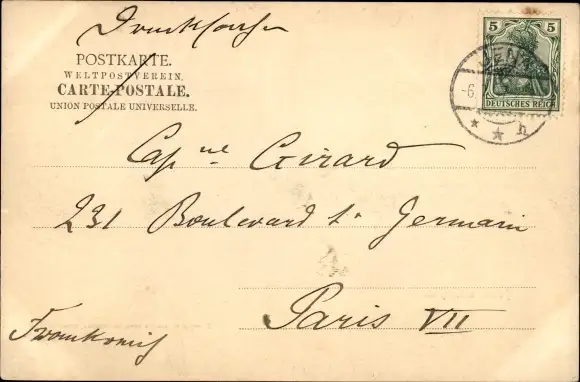 Drucksache
POSTKARTE.
WELTPOSTVEREIN.
CARTE-POSTALE.
UNION POSTALE UNIVERSELLE.
5 5
DEUTSCHES REICH
JENA
-6.
h
Capne Girard
231 Boulevard St Germain
Paris VII
Frankreich